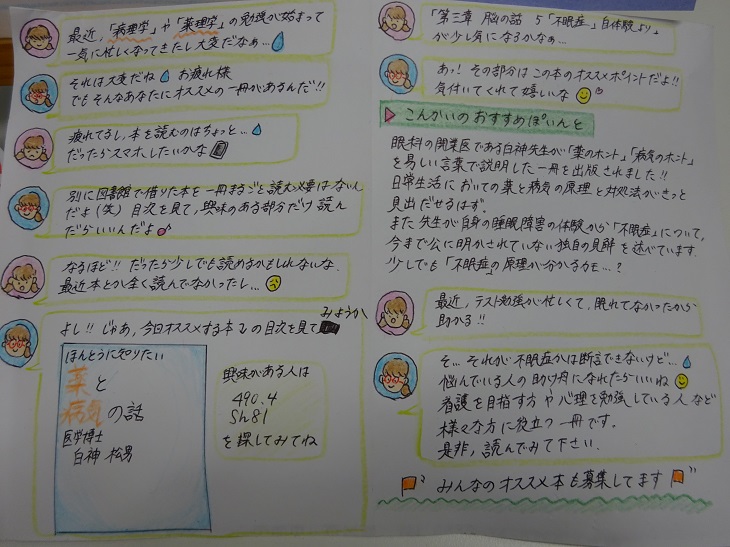 最近、「病理学」や「薬理学」の勉強が始まって
一気に忙しくなってきたし大変だなぁ…
それは大変だね お疲れ様
でもそんなあなたにオススメの一冊があるんだ!!
疲れてるし、本を読むのはちょっと…
だったらスマホ、したいかな
別に図書館で借りた本を一冊まるごと読む必要はないん
だよ(笑) 目次を見て、興味のある部分だけ読ん
だらいいんだよ♪
なるほど!! だったら少しでも読めるかもしれないな。
最近本とか全く読んでなかったし…
よし!! じゃあ、今日オススメする本の目次を見て
みようか
ほんとうに知りたい
薬と
病気の話
医学博士
白神 松男
興味がある人は
490.4
Sh81
を探してみてね
「第三章 脳の話 5「不眠症」自体験より」
が少し気になるかなぁ…
あっ! その部分はこの本のオススメポイントだよ!!
気付いてくれて嬉しいな
こんかいの おすすめぽいんと
眼科の開業医である白神先生が「薬のホント」「病気のホント」
を易しい言葉で説明した一冊を出版されました!!
日常生活においての薬と病気の原理と対処法がきっと
見出だせるはず。
また先生が自身の睡眠障害の体験から「不眠症」について、
今まで公に明かされていない独自の見解を述べています。
少しでも「不眠症」の原理が分かるカモ…?
最近、テスト勉強が忙しくて、眠れてなかったから
助かる!!
そ…それが不眠症かは断言できないけど…
悩んでいる人の助け舟になれたらいいね
看護を目指す方や心理を勉強している人など
様々な方に役立つ一冊です。
是非、読んでみて下さい。
みんなのオススメ本も募集してます